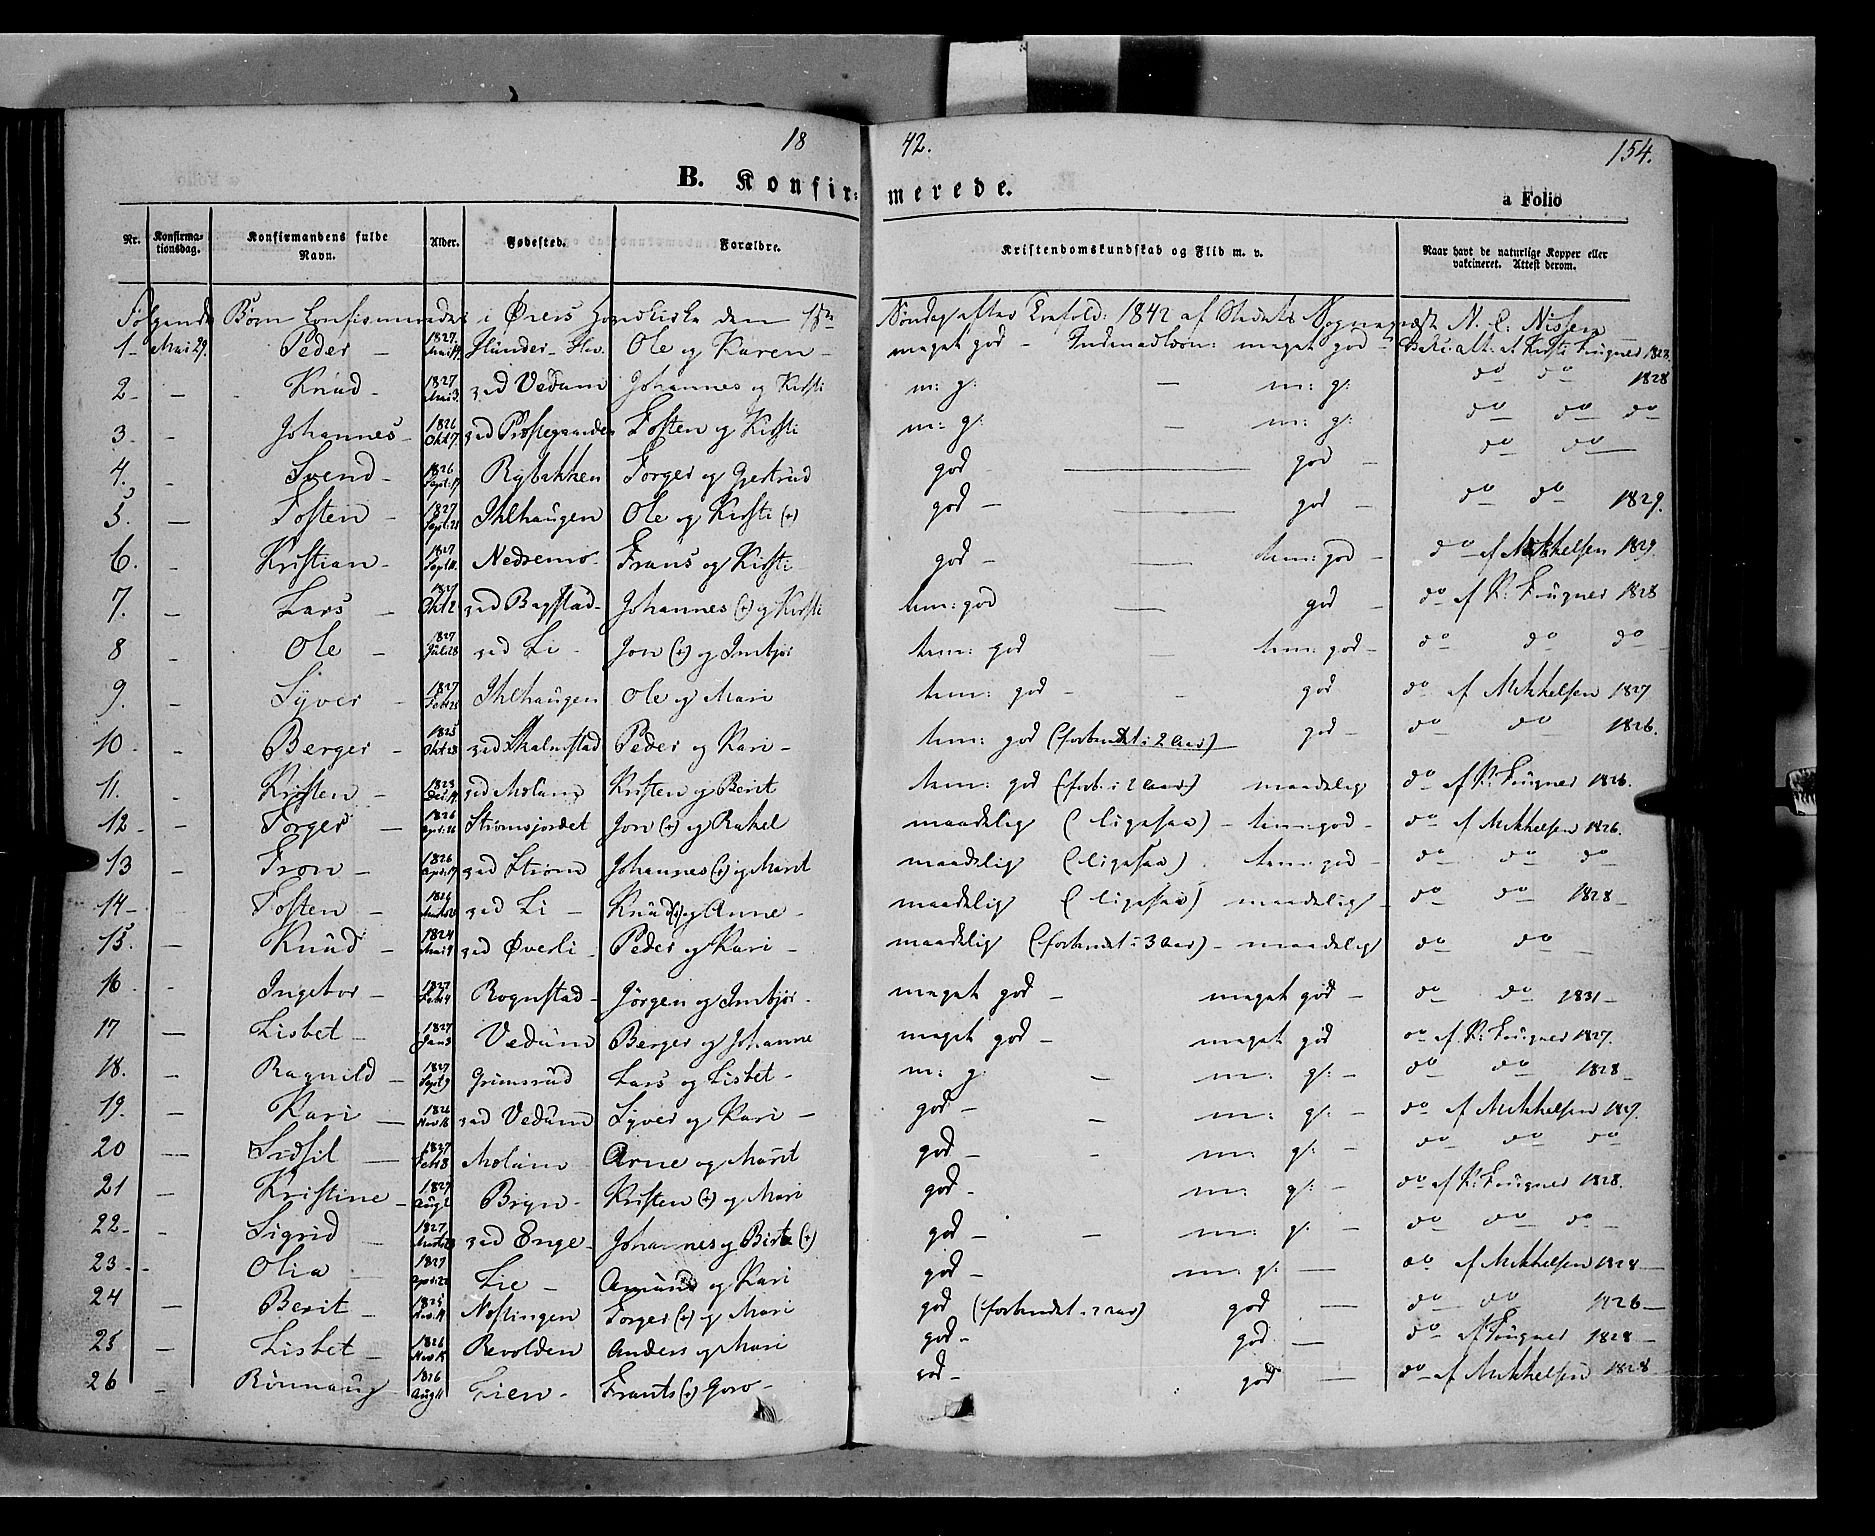 18 42. 154.
B. Konfir- merede. a Folio
Nr. Konfirmationsdag. Konfirmandens fulde Navn. Alder. Fødested. Forældre. Kristendomskundskab og Flid m. v. Naar havt de naturlige Kopper eller vakcineret. Attest derom.
Følgende Børn Confirmeredes i Øiers Hovedkirke den 1ste Søndag efter Trefold: 1842 af Stedets Sognepræst N. C. Nissen
1 - Mai 29. Peder - 1827 Ole og Karen - meget god - meget god - af Kirsti Fougner 1828.
2 - - Knud - 1827 Mai 3. ved Vedum Johannes og Kirsti m: g: - m: g: do do 1828
3. - Johannes - 1826 Okt 7 ved Prestegaarden Tosten og Kirsti m: g: - m: g: do do do
4. - Svend - 1826 Sept: 17 Rybakken Torger og Gjertrud god - god - do do
5. - Tosten - 1827 Sept: 25 Ihlhaugen Ole og Kirsti (+) god - god - do do 1829.
6. - Kristian - 1827 Sept 11. Nedremo - Frans og Kirsti god - tem: god - do af Mikkelsen 1829.
7. - Lars - 1827 Okt 2 ved Bagstad - Johannes (+) og Kirsti tem: god god - do af K: Fougner 1828
8 - Ole - 1827 Juli 28 ved Li - Jon (+) og Imbjør tem: god tem: god - do do do
9. - Syver - 1827 Feb: 25 Ihlhaugen Ole og Mari tem: god - god do af Mikkelsen 1827
10. - Berger - 1825 Okt 23 ved Skalmstad Peder og Kari - tem: god (forberedt i 2 Aar) god - do do 1826.
11. - Kristen - 1823 ved Molum Kristen og Berit tem: god (forb. i 2 Aar) maadelig do af K: Fougner 1826.
12 - - Torger - 1826 Strømsjordet Jon (+) og Rakel maadelig (ligesaa) - tem: god - do af Mikkelsen 1826.
13 - Tron - 1826 ved Strøm Johannes (+) og Marit maadelig (ligesaa) tem: god - do do do
14 - - Tosten - ved Li - Knud (+) og Anne - maadelig (ligesaa) maadelig - do do 1828 -
15. - Knud - 1824 Mai 9 ved Øverli - Peder og Kari - maadelig (forberedt i 3 Aar) - maadelig do do -
16 - Ingebor - 1827 Feb 4 Rognstad - Jörgen og Imbjør - meget god - meget god - do do 1831 -
17 - Lisbet - 1827 Jan 3 Vedum Berger og Johanne meget god - meget god do af K: Fougner 1827.
18. - Ragnild - 1827 Sept 9 Grimsrud Lars og Lisbet - m: g: - m: g: - do do 1828 -
19. - Kari - 1826 Nov 18 ved Vedum Syver og Kari - god - - m: g: - do af Mikkelsen 1827.
20 - Sidsil - 1827 Feb 18 Molum Arne og Marit god - - m: g: - do do do
21 - Kristine - 1827 Bryn - Kristen (+) og Mari god - m: g: - do af K: Fougner 1828.
22 - - Sigrid - 1827 ved Enge - Johannes og Birte (+) god - - m: g: - do do do -
23 - - Olia - 1827 Lie - Amund og Kari god - m: g: - do af Mikkelsen 1828 -
24 - Berit - 1825 Nostingen Torger (+) og Mari god (forberedt i 2 Aar) god - do do 1826 -
25 - Lisbet - 1826 Revolden Anders og Mari god - god - do af Fougner 1828 -
26 - Rønnaug - 1826 Aug 11 Lien - Frants (+) Goro - god - god - do af Mikkelsen 1828